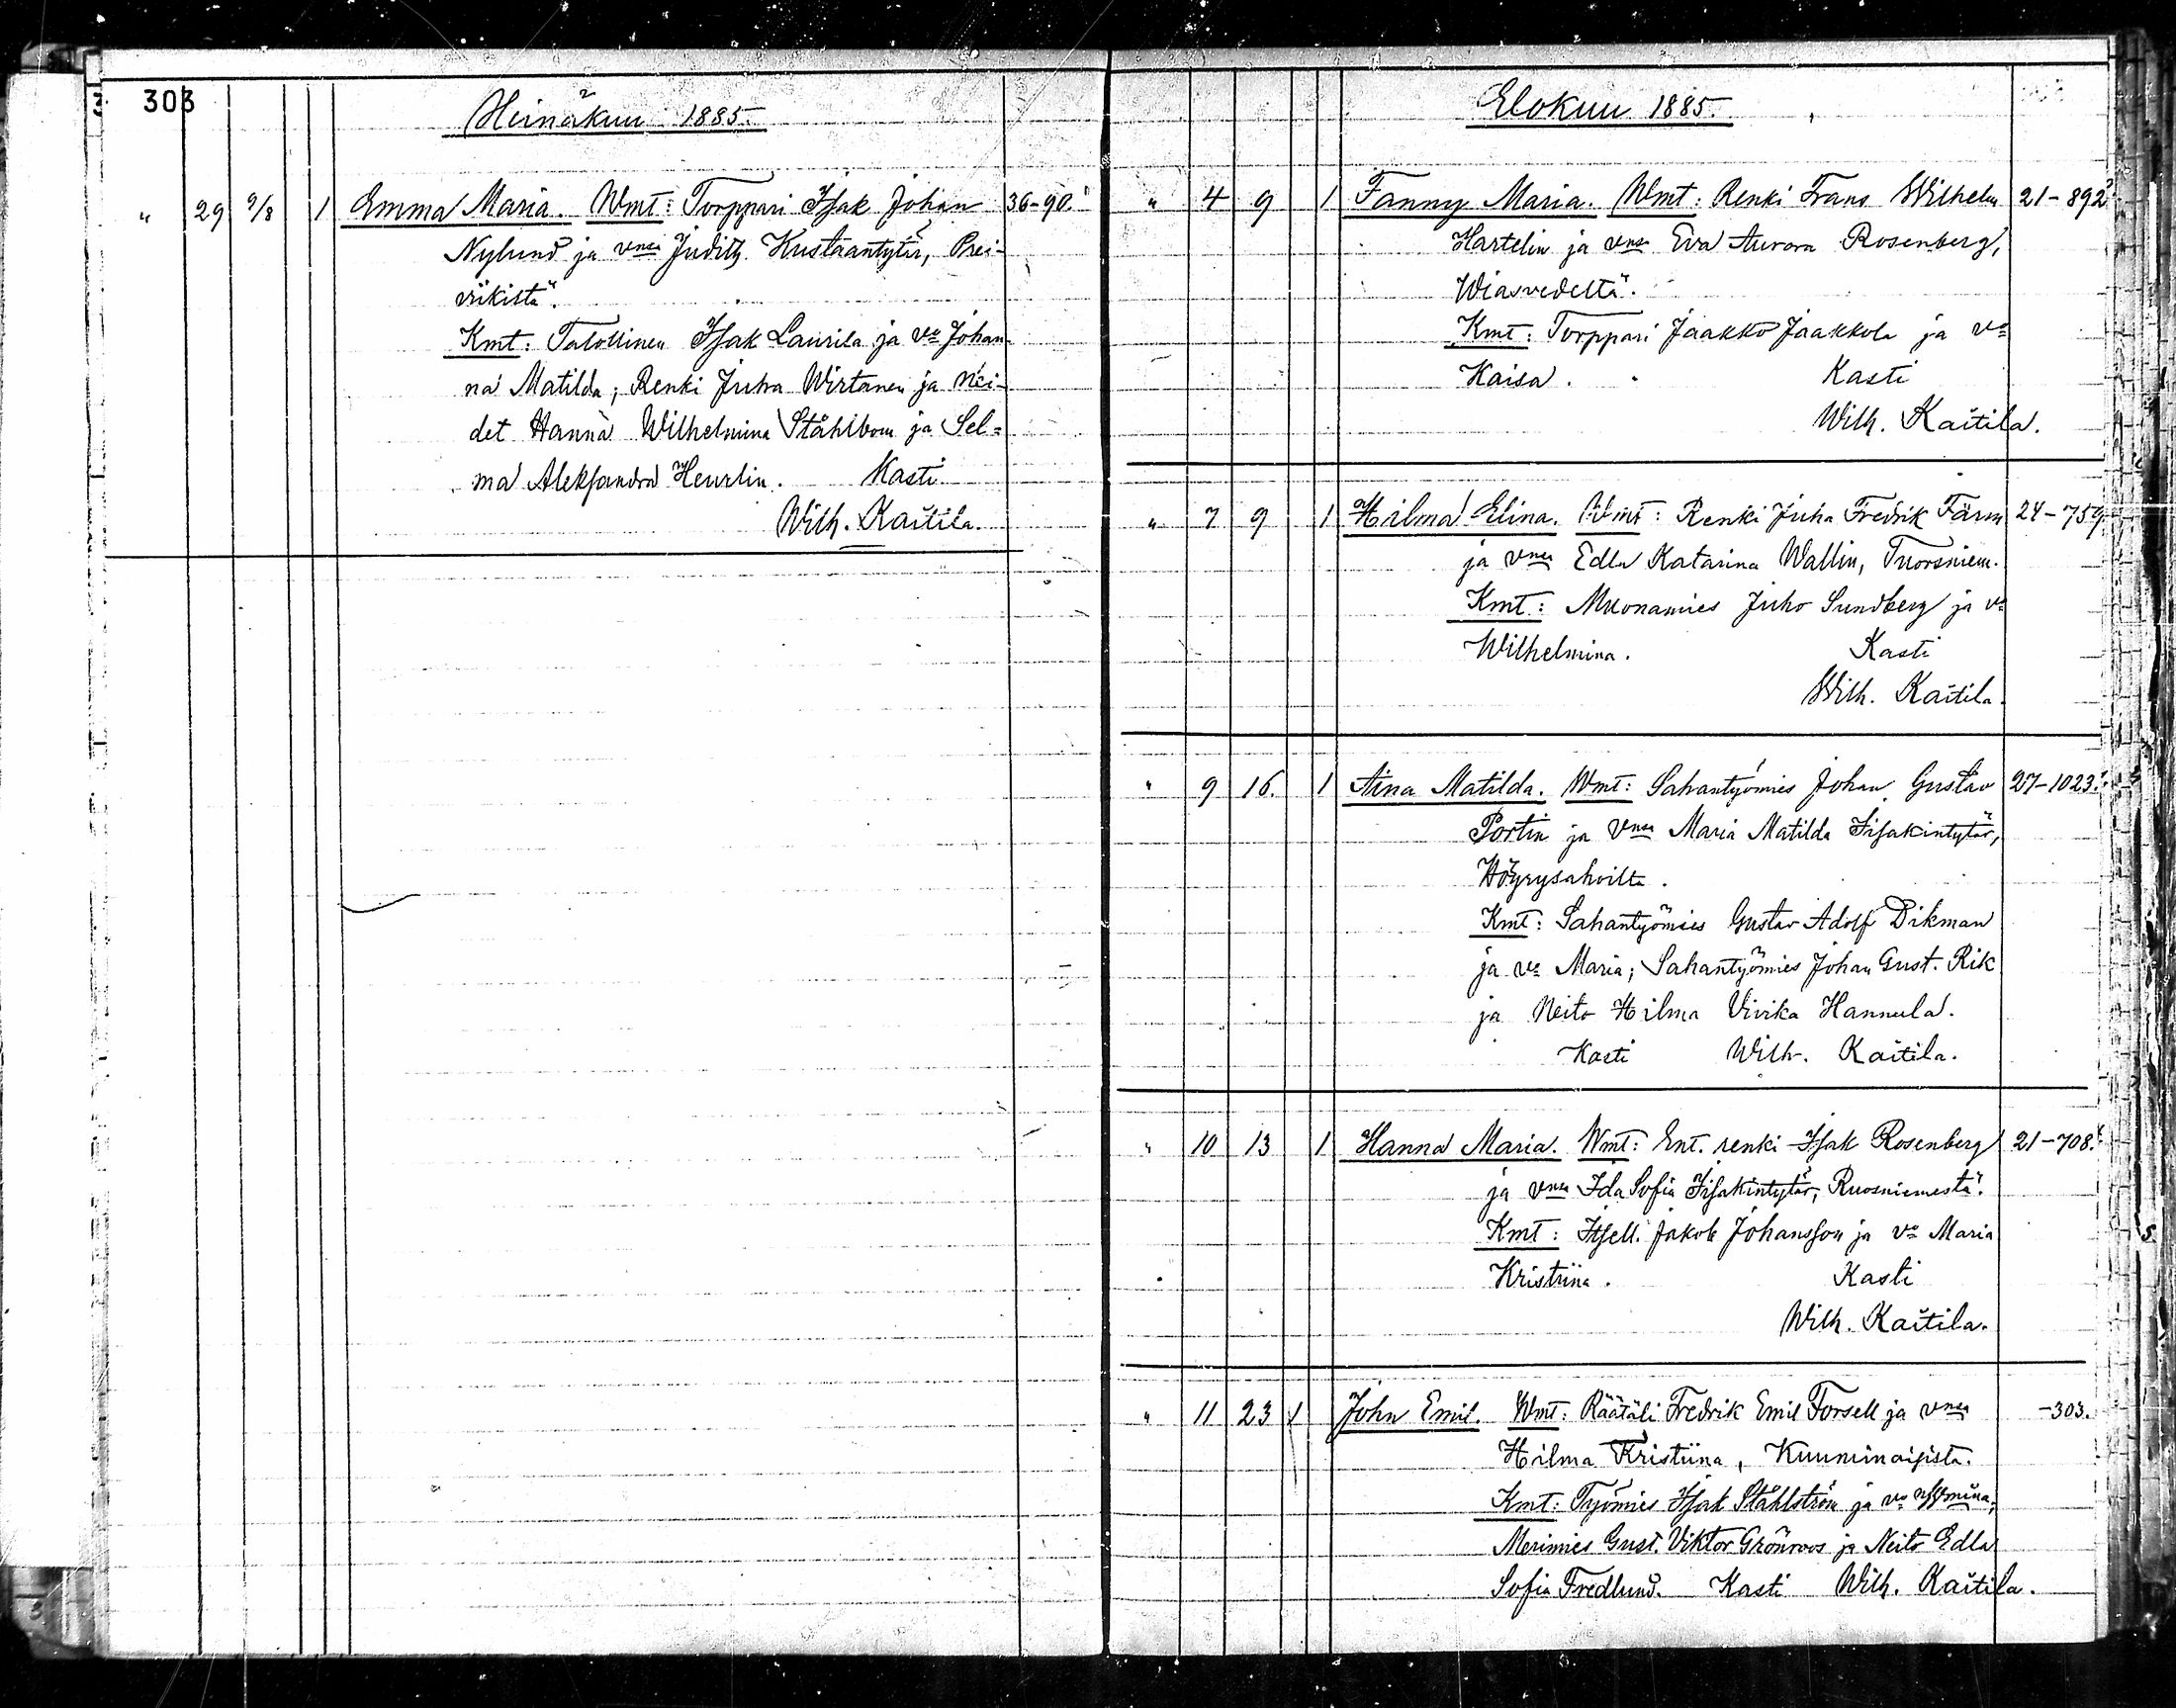 303
Heinäkuu 1885.
" 29 9/8 1 Emma Maria. Wmt: Torppari Isak Johan 36-90.
Nylund ja vnsa Judith Kustaantytär, Prei-
viikistä.
Kmt: Talollinen Isak Laurila ja vo Johan-
na Matilda; Renki Juha Wirtanen ja Nei-
det Hanna Wilhelmina Ståhlbom ja Sel=
ma Aleksandra Heurlin. Kasti
Wilh. Kaitila.
Elokuu 1885.
" 4 9 1 Fanny Maria. Wmt: Renki Frans Wilhelm 21-892
Hartelin ja vnsa Eva Aurora Rosenberg,
Wiasvedeltä.
Kmt: Torppari Jaakko Jaakkola ja vo
Kaisa. Kasti
Wilh. Kaitila.
" 7 9 1 Hilma Elina. Wmt: Renki Juha Fredrik Färm 24-759
ja vnsa Edla Katarina Wallin, Tuorsniem.
Kmt: Muonamies Juho Sundberg ja vo
Wilhelmina. Kasti
Wilh. Kaitila.
" 9 16. 1 Aina Matilda. Wmt: Sahantyömies Johan Gustav 27-1023.
Portin ja vnsa Maria Matilda Iisakintytär,
Höyrysahoilta.
Kmt: Sahantyömies Gustav Adolf Dikman
ja vo Maria; Sahantyömies Johan Gust. Rik
ja Neito Hilma Vivika Hannula.
Kasti Wilh. Kaitila.
" 10 13 1 Hanna Maria. Wmt: Ent. renki Isak Rosenberg 21-708.
ja vnsa Ida Sofia Iisakintytär, Ruosniemestä.
Kmt: Itsell. Jakob Johansson ja vo Maria
Kristiina. Kasti
Wilh. Kaitila.
" 11 23 1 John Emil. Wmt: Räätäli Fredrik Emil Forsell ja vnsa -303.
Hilma Kristiina, Kuuminaisista.
Kmt: Työmies Isak Ståhlström ja vo
Merimies Gust. Viktor Grönroos ja Neito Edla
Sofia Fredlund. Kasti Wilh. Kaitila.